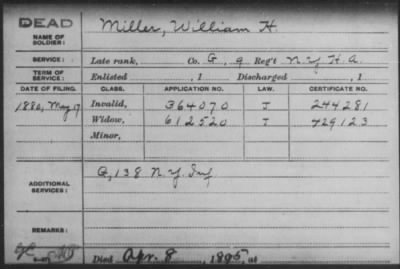 DEAD
NAME OF SOLDIER: Miller, William H.
SERVICE: Late rank, Co. G, 9 Reg't N.Y. H.A.
TERM OF SERVICE: Enlisted , 1 Discharged , 1
DATE OF FILING. CLASS. APPLICATION NO. LAW. CERTIFICATE NO.
1880, May 17 Invalid, 364070 J 244281
Widow, 612520 J 429123
Minor,
ADDITIONAL SERVICES: G, 138 N.Y. Inf
REMARKS:
Died Apr. 8, 1895, at